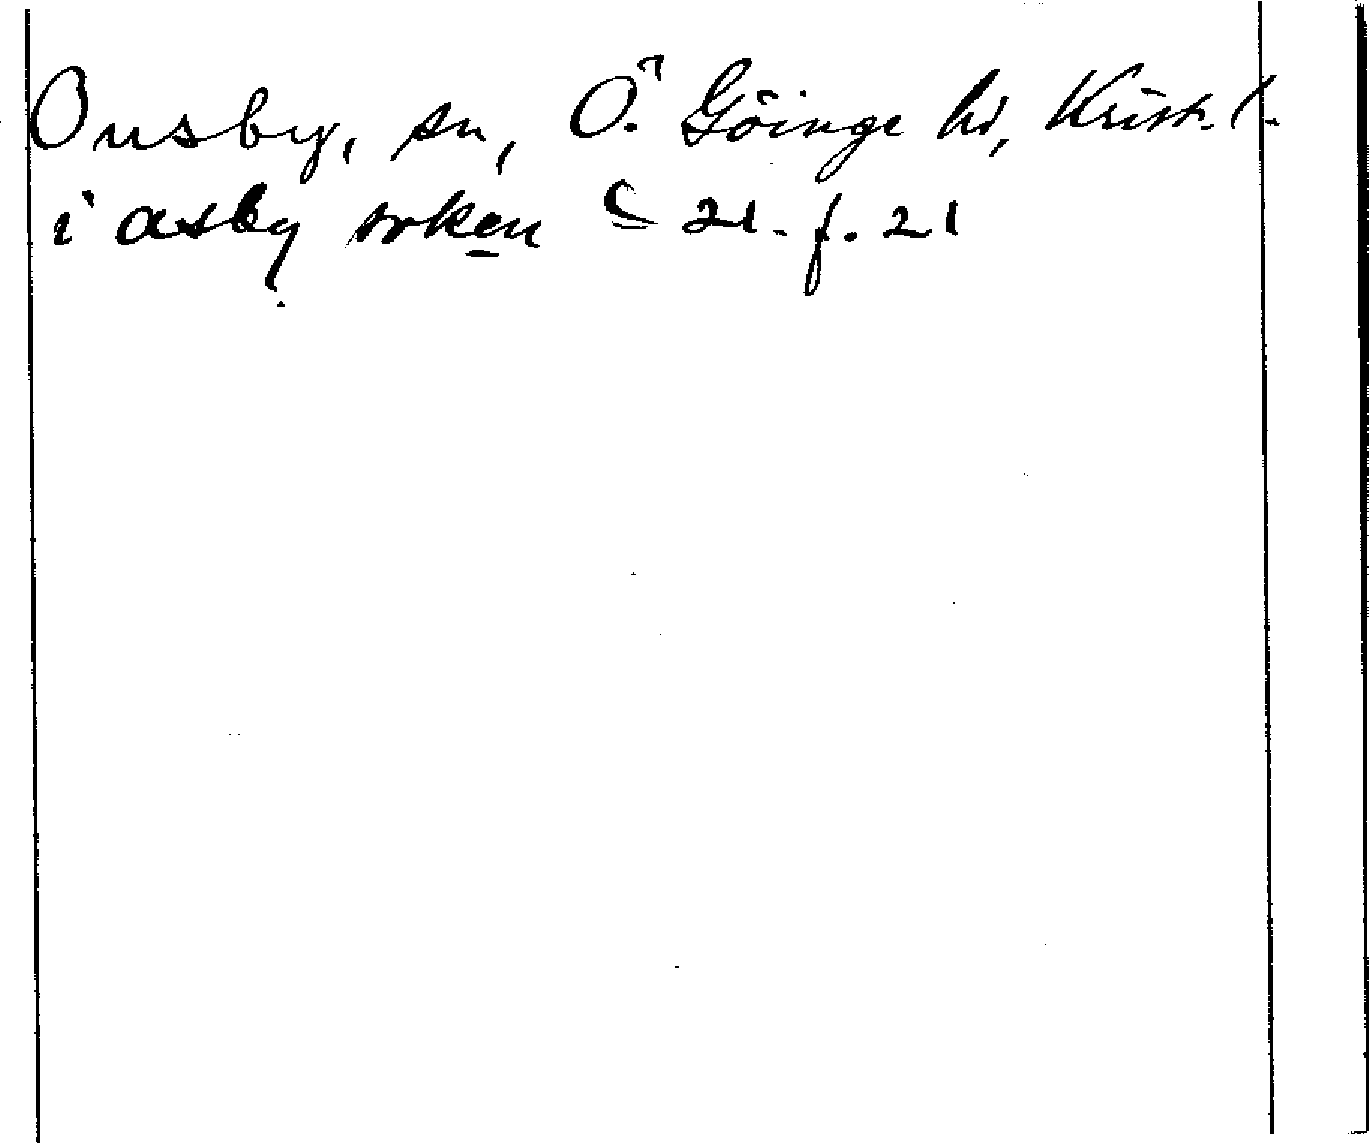 Ousby, sn, Ö. Göinge hd, Krist. l.
i asby soken C 21. f. 21